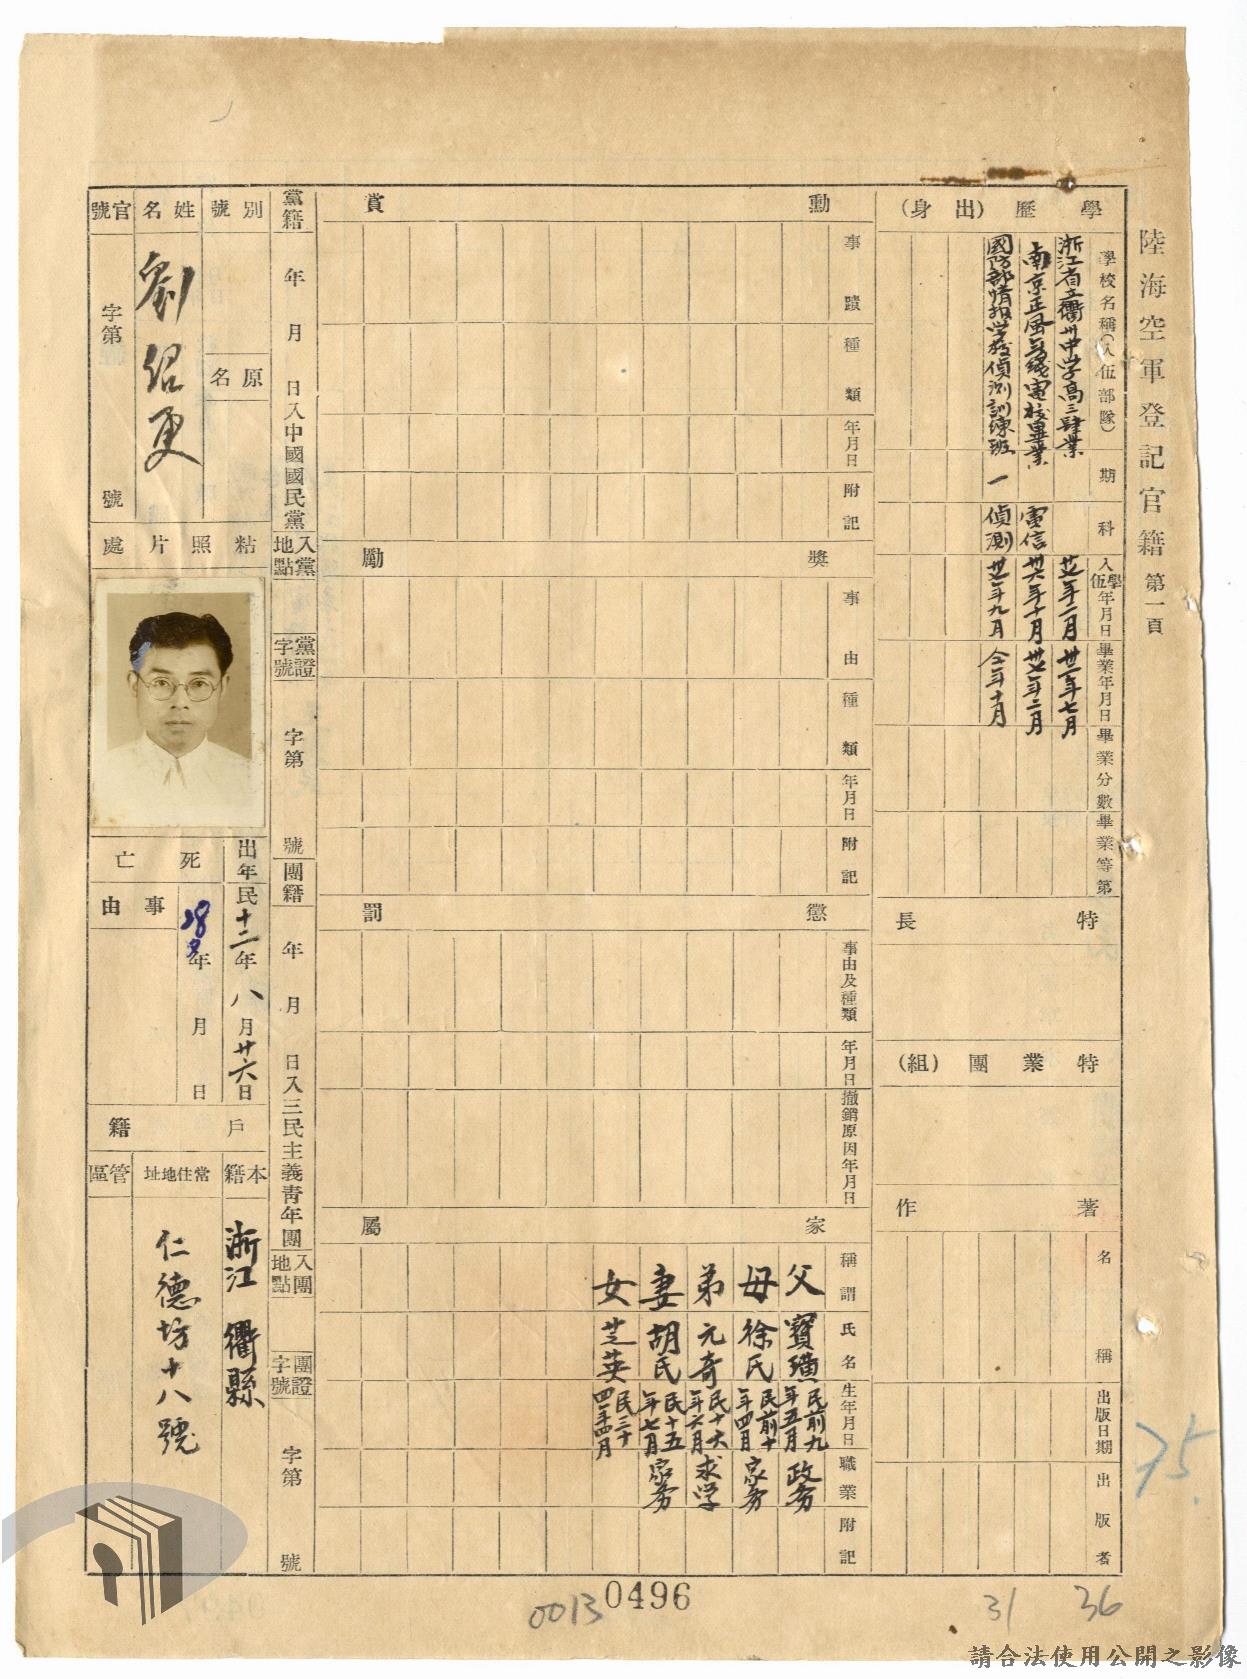 陸海空軍登記官籍 第一頁
學歷(出身)
學校名稱(入伍部隊)
期
科
入學伍年月日
畢業年月日
畢業分數
畢業等第
浙江省立衢州中学高三肄業
廿九年二月
卅二年七月
南京正風無綫電校畢業
電信
卅六年十月
卅七年二月
國防部情報学校偵測訓練班
一
偵測
仝年十月
特長
特業團(組)
著作
名稱
出版日期
出版者
勳賞
事蹟
種類
年月日
附記
獎勵
事由
種類
年月日
附記
懲罰
事由及種類
年月日
撤銷原因年月日
家屬
稱謂
氏名
生年月日
職業
附記
父
寶璜
民前九年五月
政务
母
徐氏
民前十年四月
家务
弟
元奇
民十六年六月
求学
妻
胡氏
民十五年七月
家务
女
芝英
黨籍 年 月 日入中國國民黨
入黨地點
黨證字號 字第 號
團籍 年 月 日入三民主義青年團
入團地點
團證字號 字第 號
別號
原名
姓名
劉紹更
官號
字第 號
粘照片處
出年
民十二年八月廿六日
死亡
28年 月 日
事由
戶籍
本籍
浙江 衢縣
常住地址
仁德坊十八號
管區
75.
0013
0496
31
36
請合法使用公開之影像